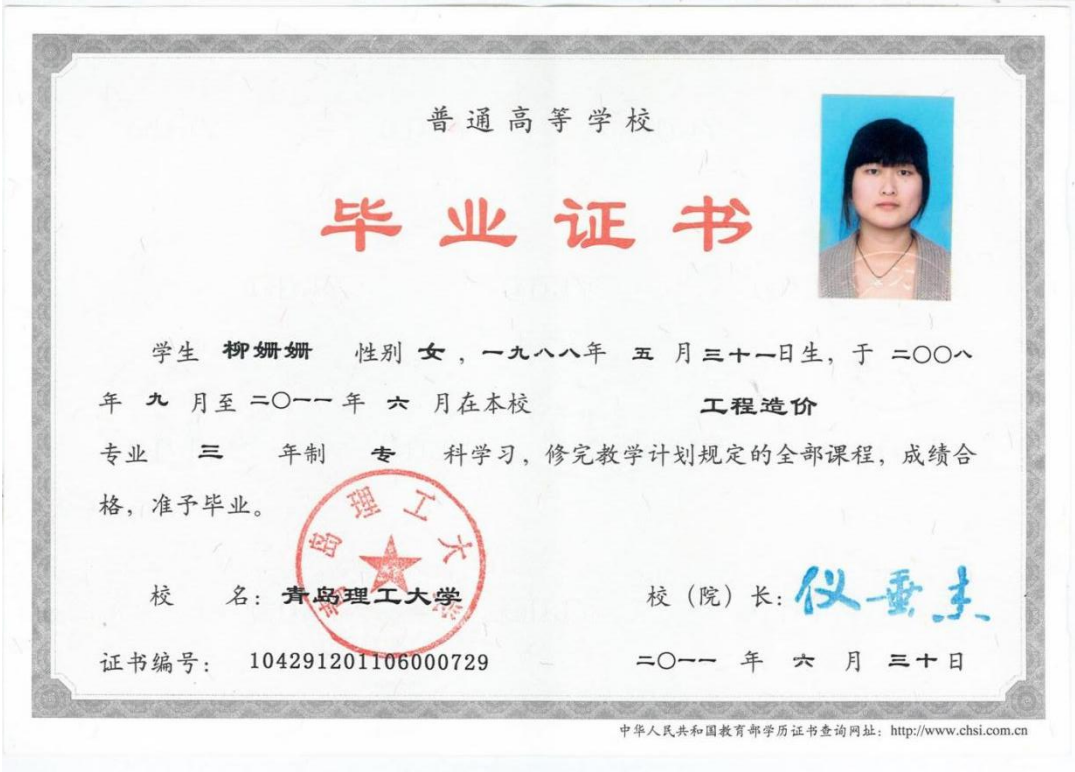 普通高等学校
毕业证书
学生 柳姗姗 性别 女 ，一九八八年 五 月三十一日生，于 二〇〇八
年 九 月至 二〇一一 年 六 月在本校 工程造价
专业 三 年制 专 科学习，修完教学计划规定的全部课程，成绩合
格，准予毕业。
青岛理工大学
校 名：青岛理工大学 校（院）长：仪垂杰
证书编号： 104291201106000729 二〇一一 年 六 月 三十日
中华人民共和国教育部学历证书查询网址：http://www.chsi.com.cn